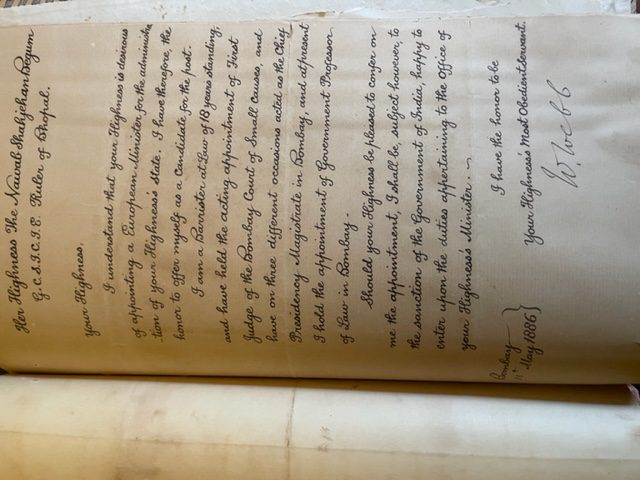 Her Highness The Nawab Shahjehan Begum
G.C.S.I. C.I.E. Ruler of Bhopal.
Your Highness,
I understand that your Highness is desirous
of appointing a European Minister for the administra
-tion of your Highness's State. I have therefore, the
honor to offer myself as a Candidate for the post.
I am a Barrister at Law of 18 years standing,
and have held the acting appointment of First
Judge of the Bombay Court of Small Causes, and
have on three different occasions acted as the Chief
Presidency Magistrate in Bombay, and at present
I hold the appointment of Government Professor
of Law in Bombay.
Should your Highness be pleased to confer on
me the appointment, I shall be, subject however, to
the sanction of the Government of India, happy to
enter upon the duties appertaining to the Office of
your Highness's Minister.
I have the honor to be
Your Highness's Most Obedient Servant.
W. Webb
Bombay
11th May 1886